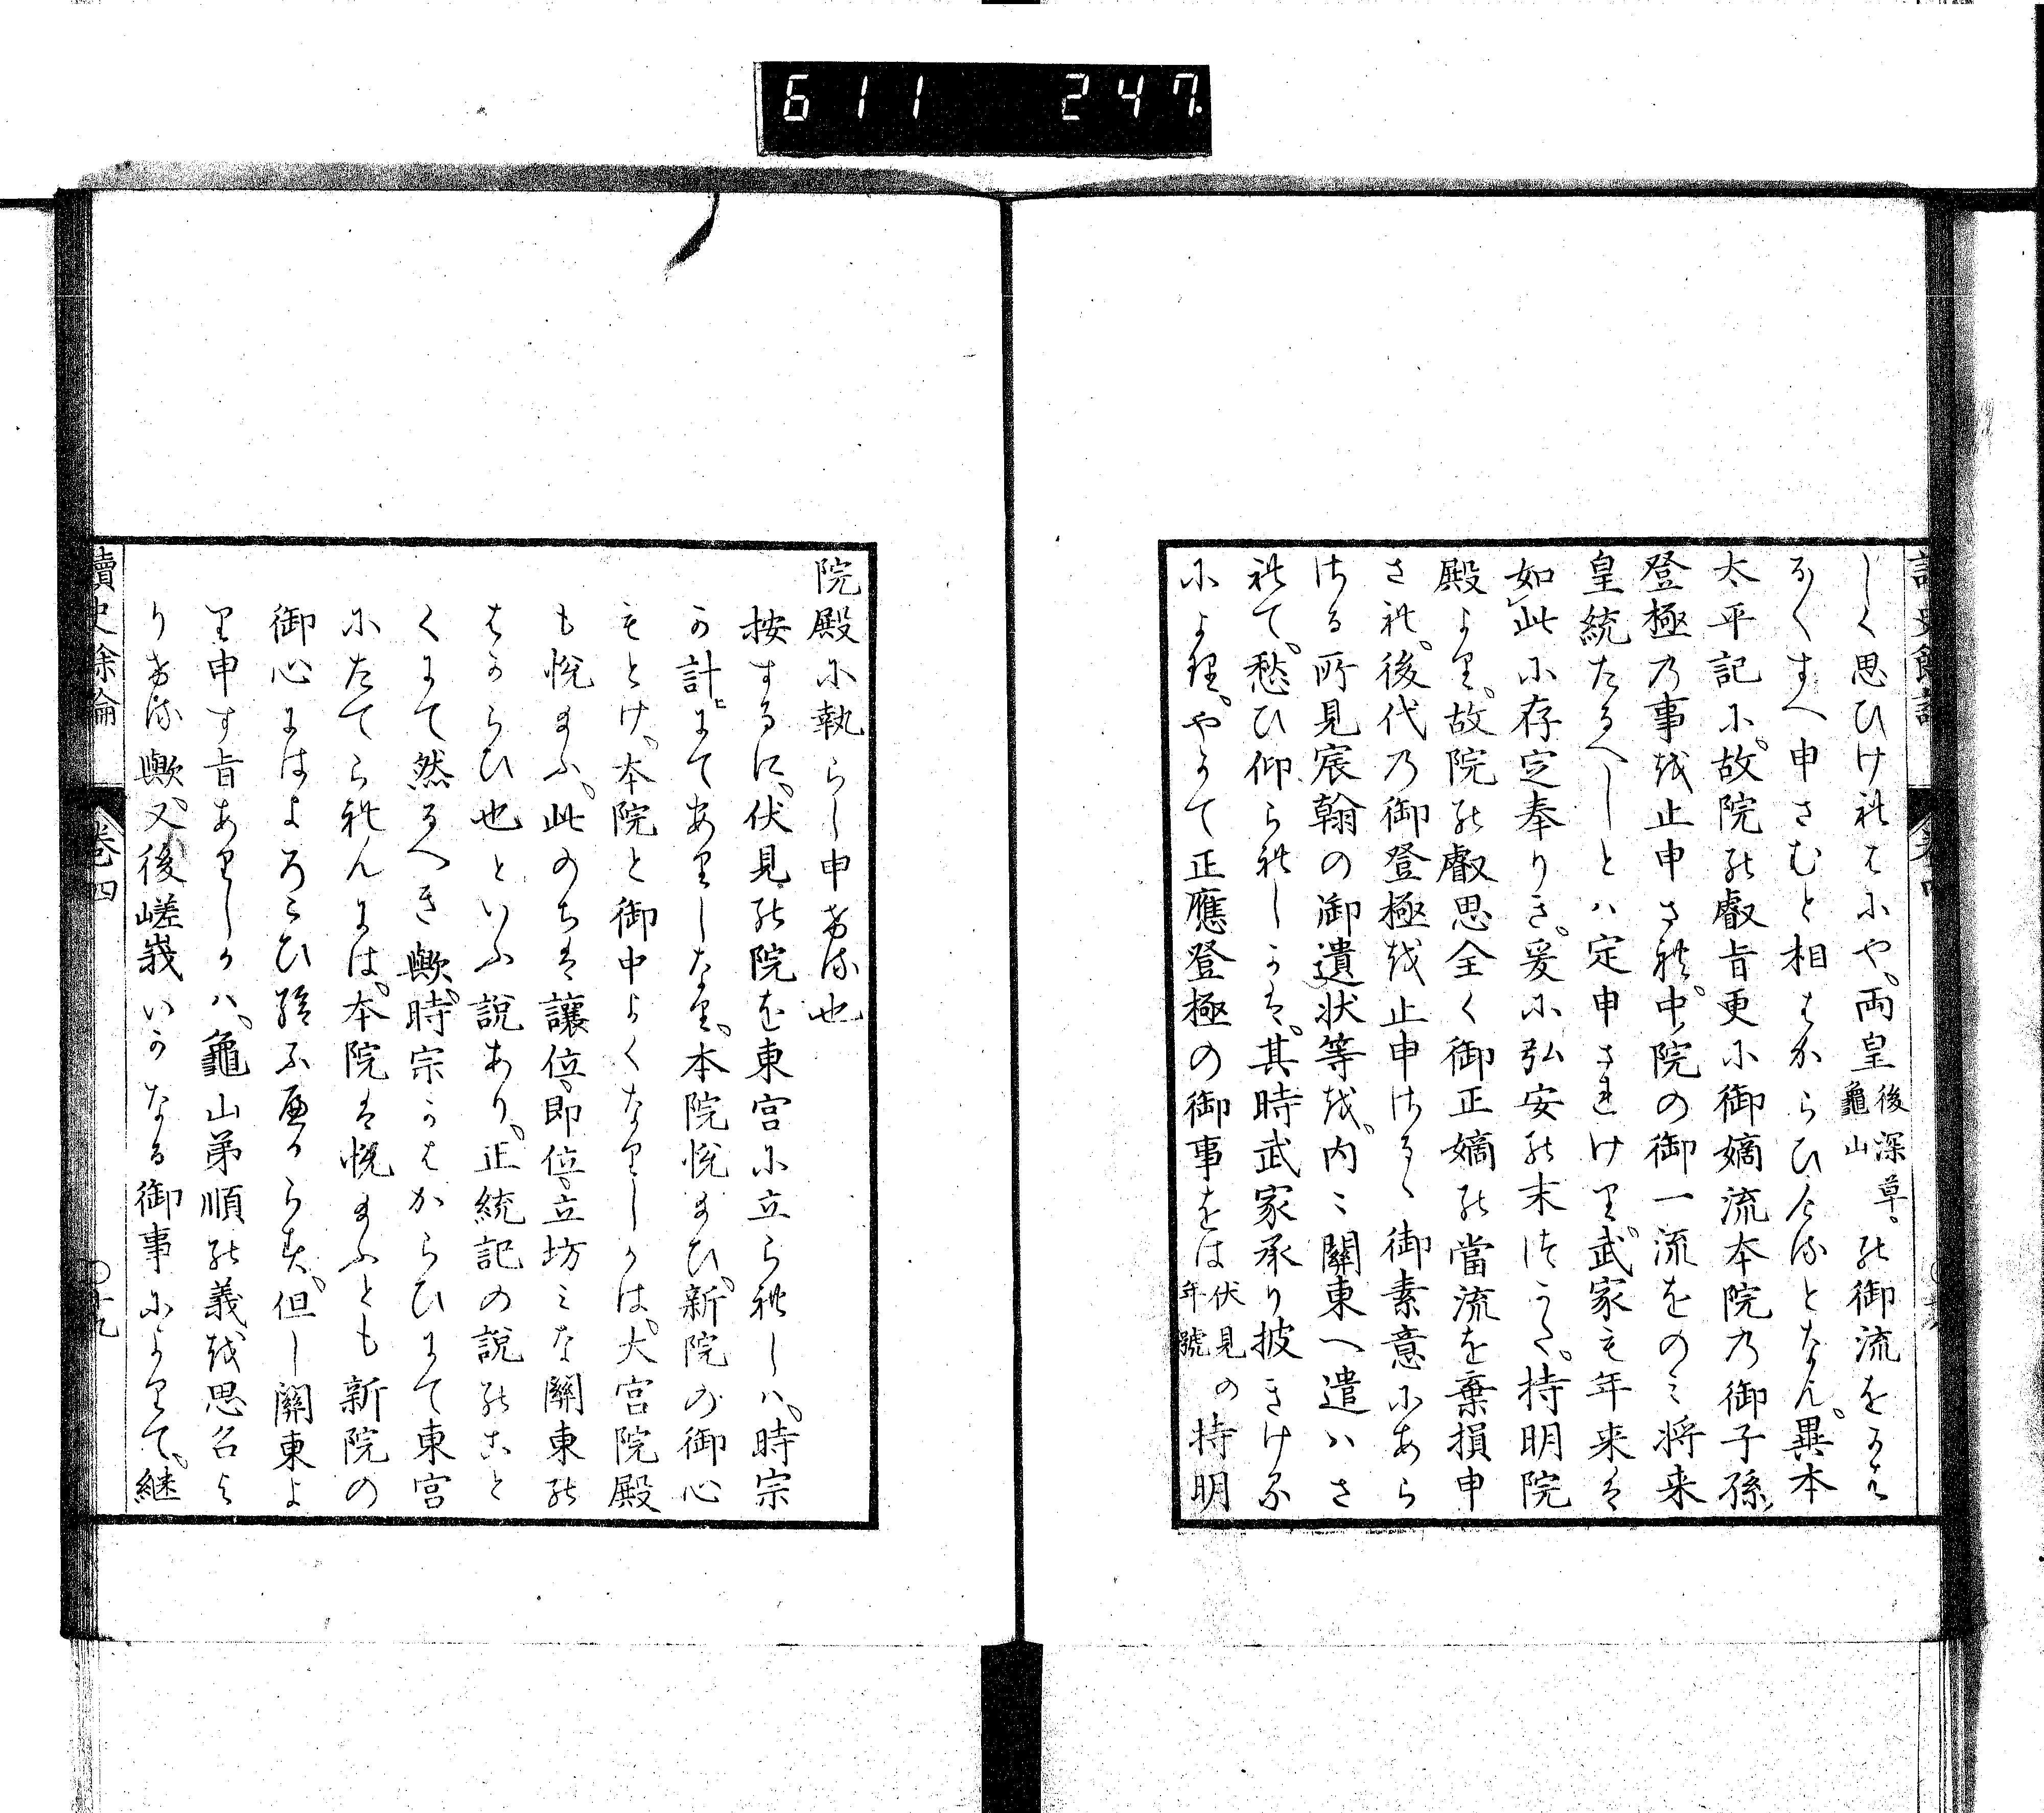 611 247
しく思ひけれはにや、両皇後深草、龜山の御流をかは
るくすへ申さむと相はからひけるとなん。異本
太平記に、故院の叡旨更に御嫡流本院乃御子孫、
登極乃事を止申され、中院の御一流をのミ将来
皇統たるへしとハ定申されけり。武家も年来は
如此に存定奉りき。爰に弘安の末つかた、持明院
殿より、故院の叡思全く御正嫡の當流を棄損申
され、後代乃御登極を止申さるゝ御素意にあら
さる所見宸翰の御遺状等を、内々關東へ遣ハさ
れて、愁ひ仰られしかは、其時武家承り披きける
により、やかて正應登極の御事をは伏見の年號持明
院殿に執らし申ける也
按するに、伏見の院を東宮に立られしハ、時宗
か計にてありしなり。本院悦まひ、新院の御心
もとけ、本院と御中よくなりしかは、大宮院殿
も悦まふ。此のちは讓位、即位、立坊ミな關東の
はからひ也といふ説あり。正統記の説のこと
くにて然るへき歟。時宗かはからひにて東宮
にたてられんには、本院は悦まふとも新院の
御心にはよろこひ給ふへからす。但し關東よ
り申す旨ありしかハ、龜山弟順の義を思召よ
りける歟。又後嵯峩いかなる御事によりて、継
讀史餘論
巻四